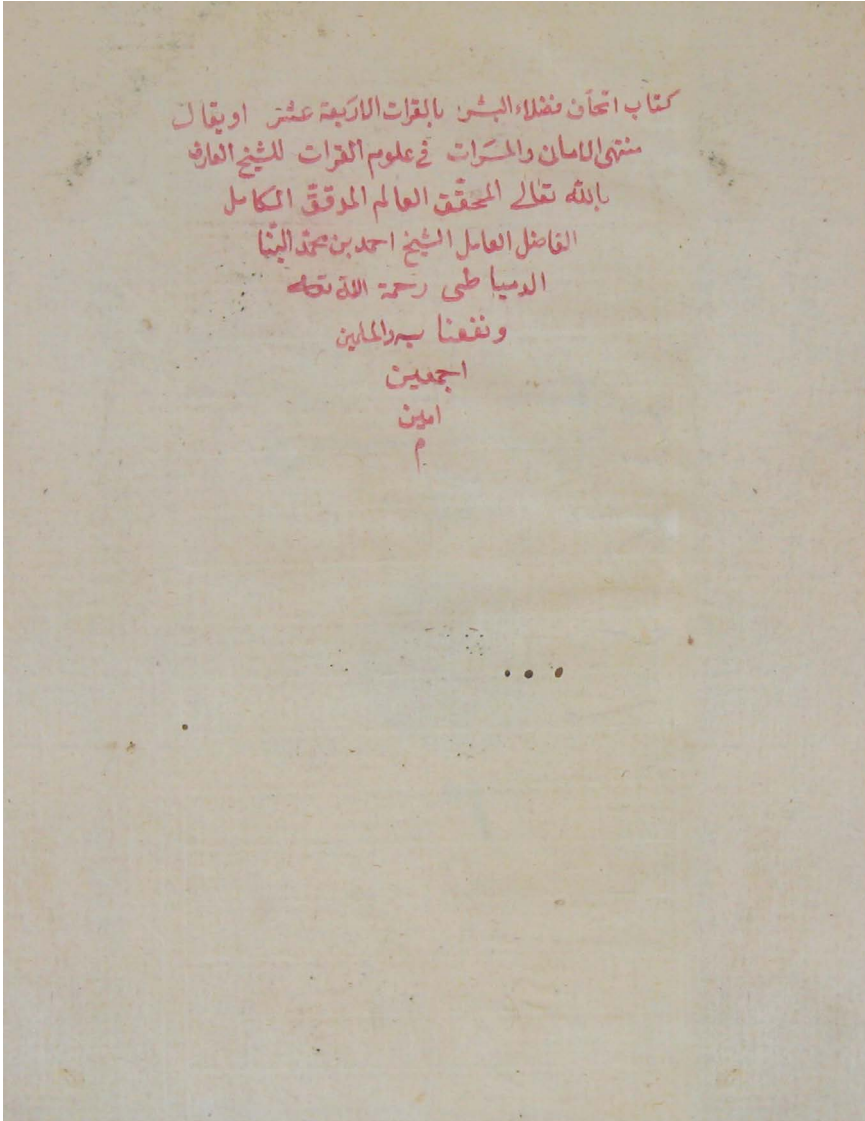 كتاب اتحاف فضلاء البشر بالقرات الاربعة عشر او يقال
منتهى الامانى والمسَرات فى علوم القرات للشيخ العارف
بالله تعالى المحقّق العالم المدقّق الكامل
الفاضل العامل الشيخ احمد بن محمد البنّا
الدمياطى رحمة الله تعالى
ونفعنا به والمسلمين
اجمعين
امين
م